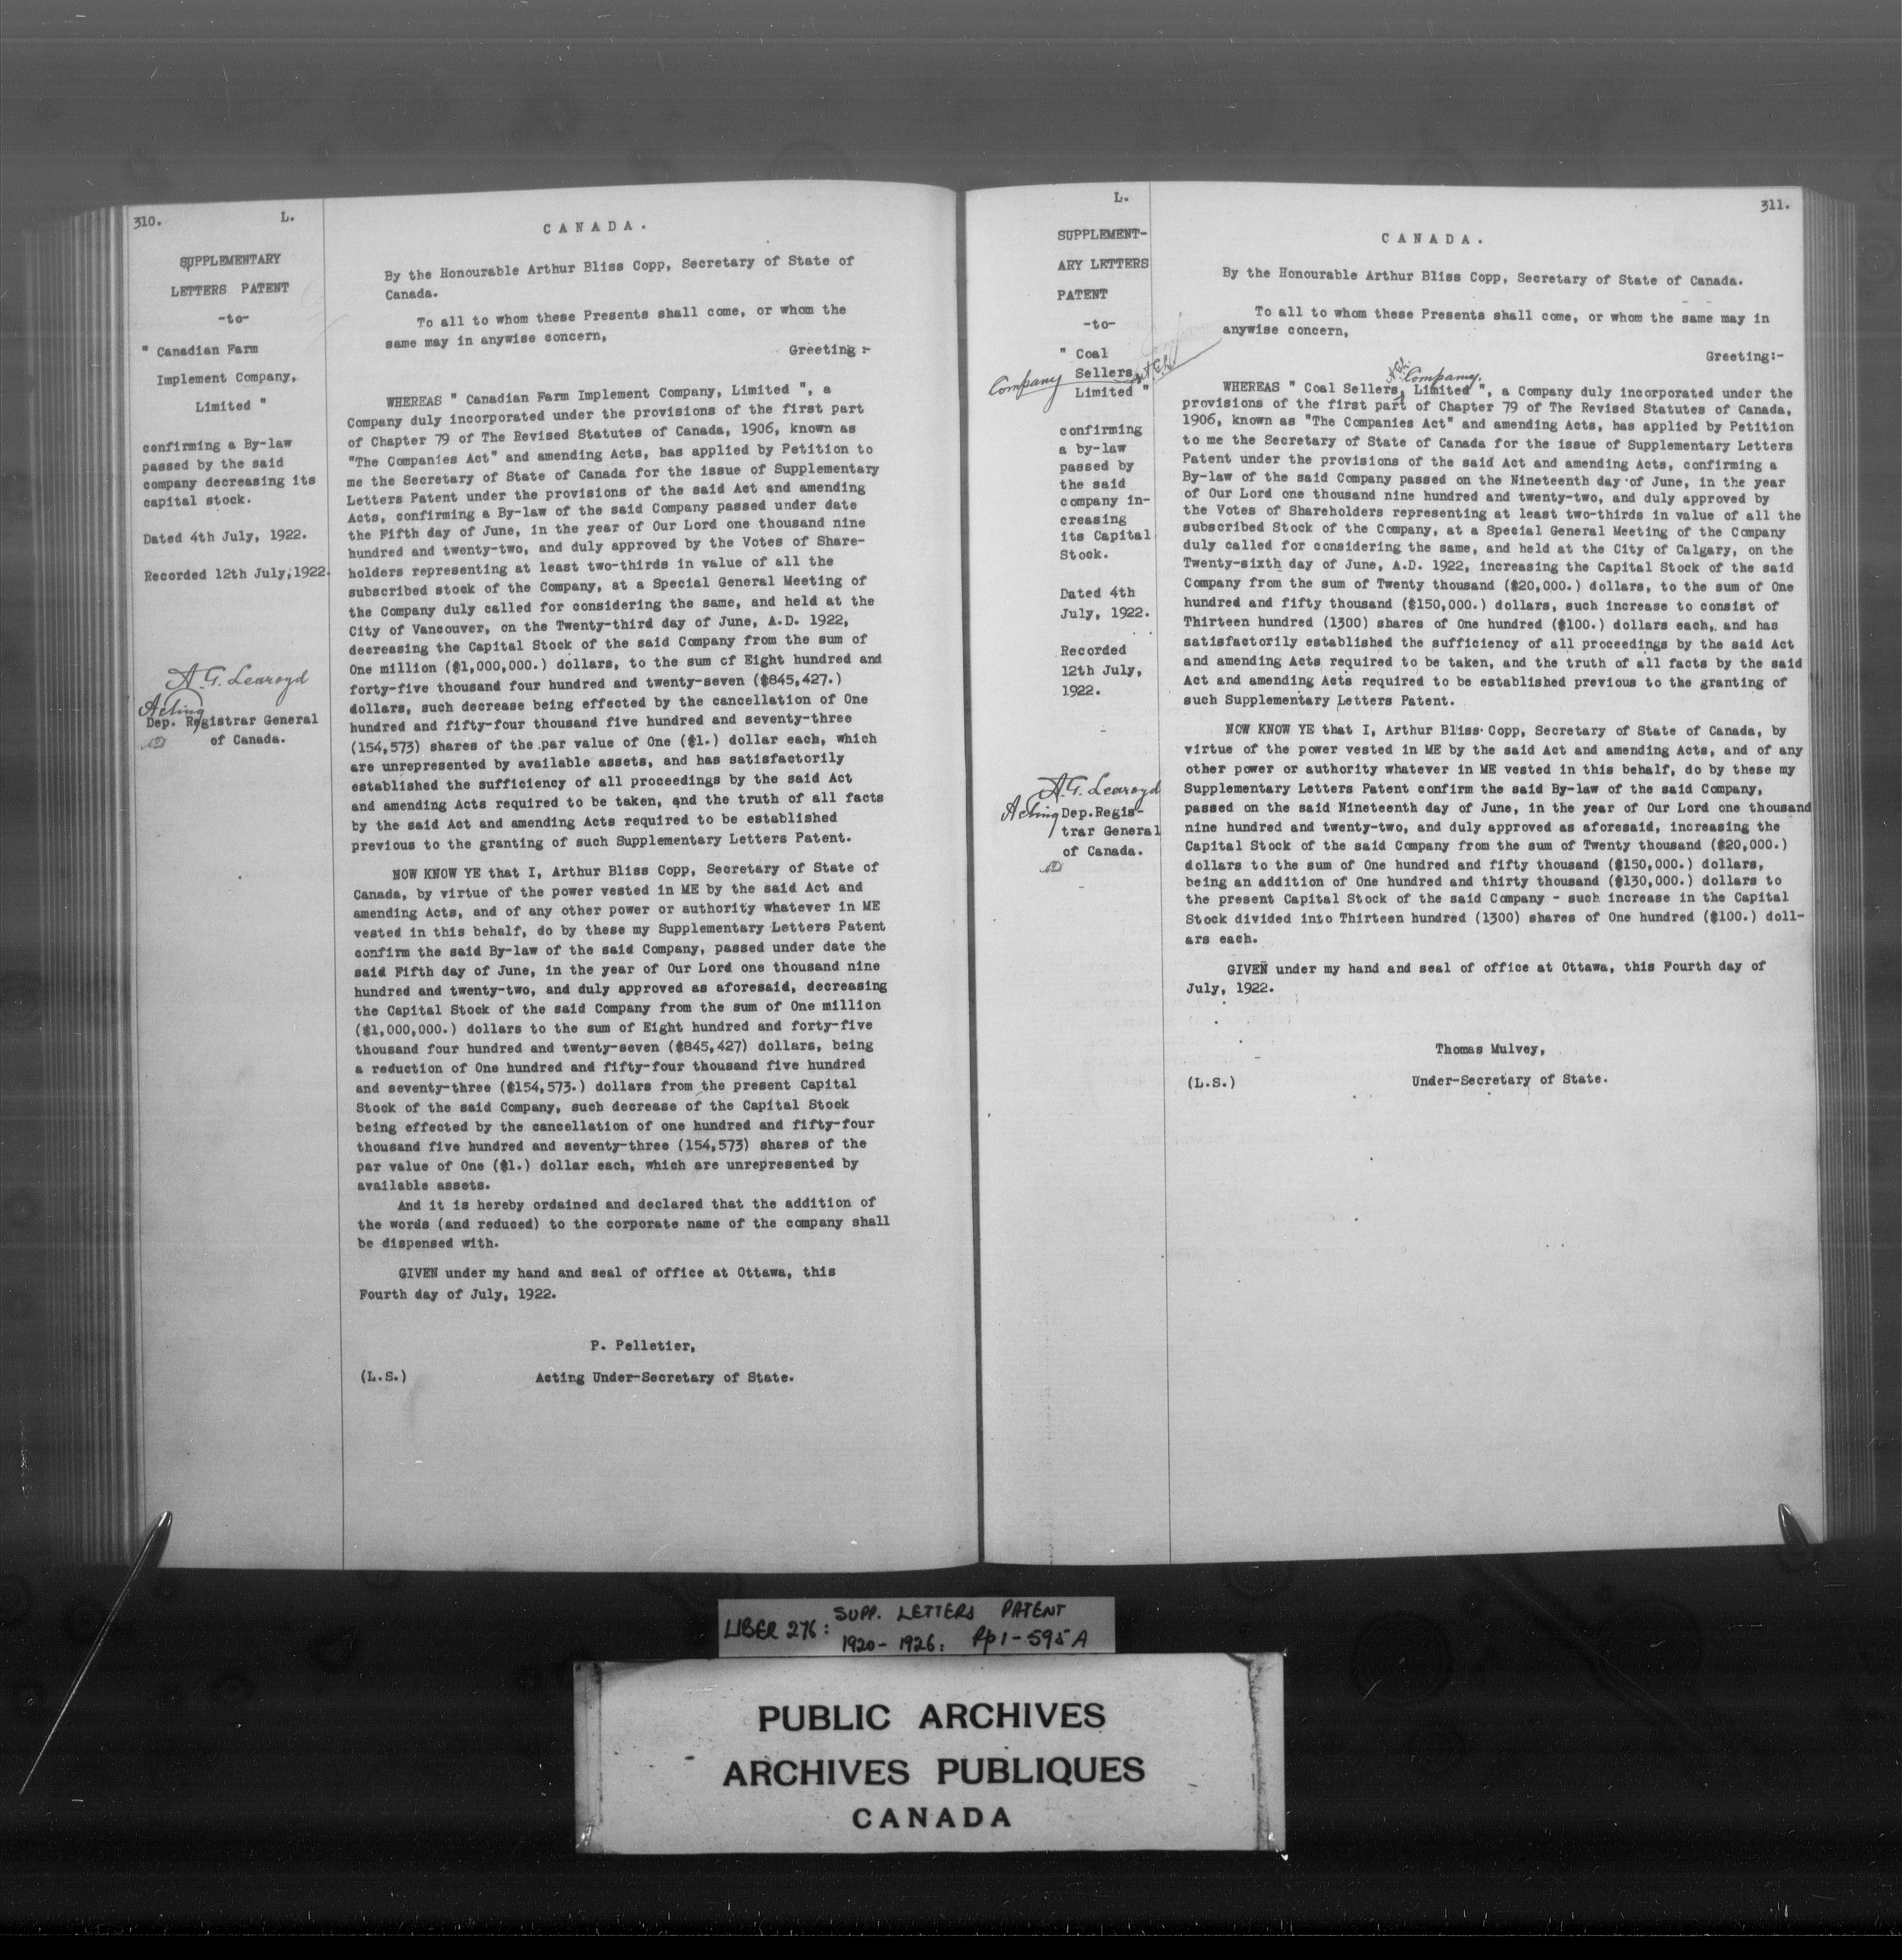 310.
L.
SUPPLEMENTARY
LETTERS PATENT
-to-
" Canadian Farm
Implement Company,
Limited "
confirming a By-law
passed by the said
company decreasing its
capital stock.
Dated 4th July, 1922.
Recorded 12th July, 1922.
A. G. Learoyd
Acting
Dep. Registrar General
of Canada.
C A N A D A .
By the Honourable Arthur Bliss Copp, Secretary of State of
Canada.
To all to whom these Presents shall come, or whom the
same may in anywise concern,
Greeting :-
WHEREAS " Canadian Farm Implement Company, Limited ", a
Company duly incorporated under the provisions of the first part
of Chapter 79 of The Revised Statutes of Canada, 1906, known as
"The Companies Act" and amending Acts, has applied by Petition to
me the Secretary of State of Canada for the issue of Supplementary
Letters Patent under the provisions of the said Act and amending
Acts, confirming a By-law of the said Company passed under date
the Fifth day of June, in the year of Our Lord one thousand nine
hundred and twenty-two, and duly approved by the Votes of Share-
holders representing at least two-thirds in value of all the
subscribed stock of the Company, at a Special General Meeting of
the Company duly called for considering the same, and held at the
City of Vancouver, on the Twenty-third day of June, A.D. 1922,
decreasing the Capital Stock of the said Company from the sum of
One million ($1,000,000.) dollars, to the sum of Eight hundred and
forty-five thousand four hundred and twenty-seven ($845,427.)
dollars, such decrease being effected by the cancellation of One
hundred and fifty-four thousand five hundred and seventy-three
(154,573) shares of the par value of One ($1.) dollar each, which
are unrepresented by available assets, and has satisfactorily
established the sufficiency of all proceedings by the said Act
and amending Acts required to be taken, and the truth of all facts
by the said Act and amending Acts required to be established
previous to the granting of such Supplementary Letters Patent.
NOW KNOW YE that I, Arthur Bliss Copp, Secretary of State of
Canada, by virtue of the power vested in ME by the said Act and
amending Acts, and of any other power or authority whatever in ME
vested in this behalf, do by these my Supplementary Letters Patent
confirm the said By-law of the said Company, passed under date the
said Fifth day of June, in the year of Our Lord one thousand nine
hundred and twenty-two, and duly approved as aforesaid, decreasing
the Capital Stock of the said Company from the sum of One million
($1,000,000.) dollars to the sum of Eight hundred and forty-five
thousand four hundred and twenty-seven ($845,427) dollars, being
a reduction of One hundred and fifty-four thousand five hundred
and seventy-three ($154,573.) dollars from the present Capital
Stock of the said Company, such decrease of the Capital Stock
being effected by the cancellation of one hundred and fifty-four
thousand five hundred and seventy-three (154,573) shares of the
par value of One ($1.) dollar each, which are unrepresented by
available assets.
And it is hereby ordained and declared that the addition of
the words (and reduced) to the corporate name of the company shall
be dispensed with.
GIVEN under my hand and seal of office at Ottawa, this
Fourth day of July, 1922.
P. Pelletier,
(L.S.) Acting Under-Secretary of State.
L.
SUPPLEMENT-
ARY LETTERS
PATENT
-to-
" Coal
Sellers
Company
Limited "
confirming
a by-law
passed by
the said
company in-
creasing
its Capital
Stock.
Dated 4th
July, 1922.
Recorded
12th July,
1922.
A. G. Learoyd
Acting Dep.Regis-
trar General
of Canada.
311.
C A N A D A .
By the Honourable Arthur Bliss Copp, Secretary of State of Canada.
To all to whom these Presents shall come, or whom the same may in
anywise concern,
Greeting:-
Company.
WHEREAS " Coal Sellers, Limited ", a Company duly incorporated under the
provisions of the first part of Chapter 79 of The Revised Statutes of Canada,
1906, known as "The Companies Act" and amending Acts, has applied by Petition
to me the Secretary of State of Canada for the issue of Supplementary Letters
Patent under the provisions of the said Act and amending Acts, confirming a
By-law of the said Company passed on the Nineteenth day of June, in the year
of Our Lord one thousand nine hundred and twenty-two, and duly approved by
the Votes of Shareholders representing at least two-thirds in value of all the
subscribed Stock of the Company, at a Special General Meeting of the Company
duly called for considering the same, and held at the City of Calgary, on the
Twenty-sixth day of June, A.D. 1922, increasing the Capital Stock of the said
Company from the sum of Twenty thousand ($20,000.) dollars, to the sum of One
hundred and fifty thousand ($150,000.) dollars, such increase to consist of
Thirteen hundred (1300) shares of One hundred ($100.) dollars each, and has
satisfactorily established the sufficiency of all proceedings by the said Act
and amending Acts required to be taken, and the truth of all facts by the said
Act and amending Acts required to be established previous to the granting of
such Supplementary Letters Patent.
NOW KNOW YE that I, Arthur Bliss Copp, Secretary of State of Canada, by
virtue of the power vested in ME by the said Act and amending Acts, and of any
other power or authority whatever in ME vested in this behalf, do by these my
Supplementary Letters Patent confirm the said By-law of the said Company,
passed on the said Nineteenth day of June, in the year of Our Lord one thousand
nine hundred and twenty-two, and duly approved as aforesaid, increasing the
Capital Stock of the said Company from the sum of Twenty thousand ($20,000.)
dollars to the sum of One hundred and fifty thousand ($150,000.) dollars,
being an addition of One hundred and thirty thousand ($130,000.) dollars to
the present Capital Stock of the said Company - such increase in the Capital
Stock divided into Thirteen hundred (1300) shares of One hundred ($100.) doll-
ars each.
GIVEN under my hand and seal of office at Ottawa, this Fourth day of
July, 1922.
Thomas Mulvey,
(L.S.) Under-Secretary of State.
LIBER 276: SUPP. LETTERS PATENT
1920 - 1926: Pp 1 - 595A
PUBLIC ARCHIVES
ARCHIVES PUBLIQUES
CANADA